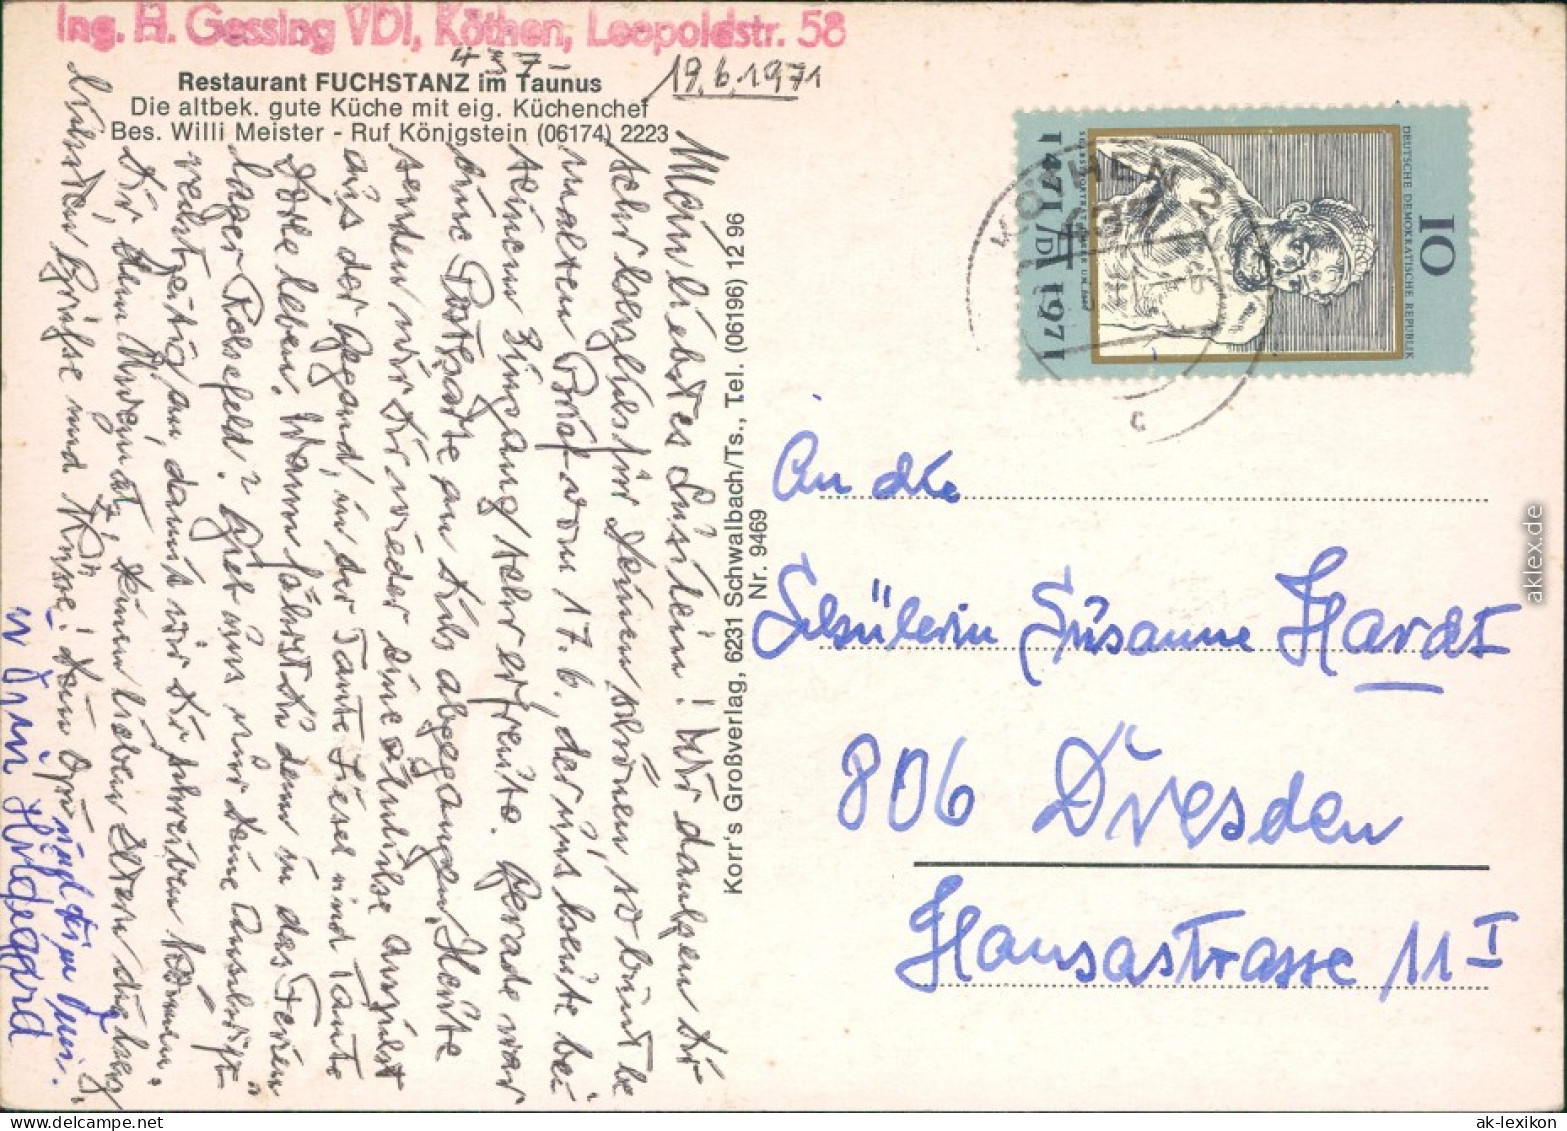 Ing. H. Gessing VDI, Köthen, Leopoldstr. 58
437-
19.6.1971
Restaurant FUCHSTANZ im Taunus
Die altbek. gute Küche mit eig. Küchenchef
Bes. Willi Meister - Ruf Königstein (06174) 2223
Mein liebstes Susilein! Wir danken Dir
sehr herzlich für Deinen schönen, so bunt be
malten Brief vom 17.6, der uns heute bei
seinem Eingang sehr erfreute. Gerade war
eine Postkarte an Dich abgegangen. Heute
senden wir Dir wieder eine ähnliche Ansicht
aus der Gegend, in der Tante Liesel und Tante
leben. Wann fährst Du denn in das Ferien
lager Rossfeld? Gieb uns nur Deine Anschrift
rechtzeitig an, damit wir Dir schreiben können.
Dir, dem und Deinen lieben Eltern
Grüsse und Küsse! Dein Opi
und Deine Omi
Hildegard
Korr's Großverlag, 6231 Schwalbach/Ts., Tel. (06196) 12 96
Nr. 9469
DEUTSCHE DEMOKRATISCHE REPUBLIK
10
1471 1971
KÖTHEN 2
c
An die
Schülerin Susanne Hardt
806 Dresden
Hansastrasse 11 I
aklex.de
ak-lexikon